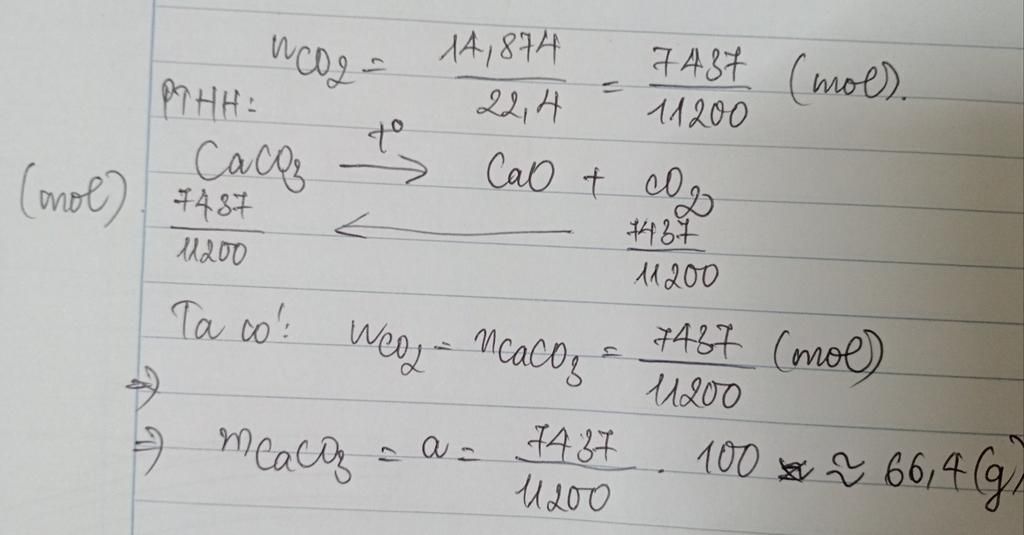 nCO2 = 14,874/22,4 = 7437/11200 (mol).
PTHH:
CaCO3 —t°→ CaO + CO2
(mol) 7437/11200 ← 7437/11200
Ta có: nCO2 = nCaCO3 = 7437/11200 (mol)
⇒
⇒ mCaCO3 = a = 7437/11200 . 100 ≈ 66,4 (g)